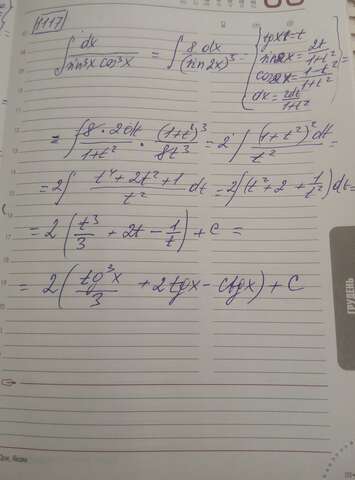 1117
∫ dx / sin³x cos³x = ∫ 8 dx / (sin2x)³ = { tgx = t
sin2x = 2t / 1+t²
cos2x = 1-t² / 1+t²
dx = 2dt / 1+t² } =
= ∫ 8·2dt / 1+t² · (1+t²)³ / 8t³ = 2 ∫ (1+t²)² dt / t² =
= 2∫ t⁴+2t²+1 / t² dt = 2∫(t²+2+1/t²)dt =
= 2(t³/3 + 2t - 1/t) + C =
= 2(tg³x/3 + 2tgx - ctgx) + C
ГРУДЕНЬ